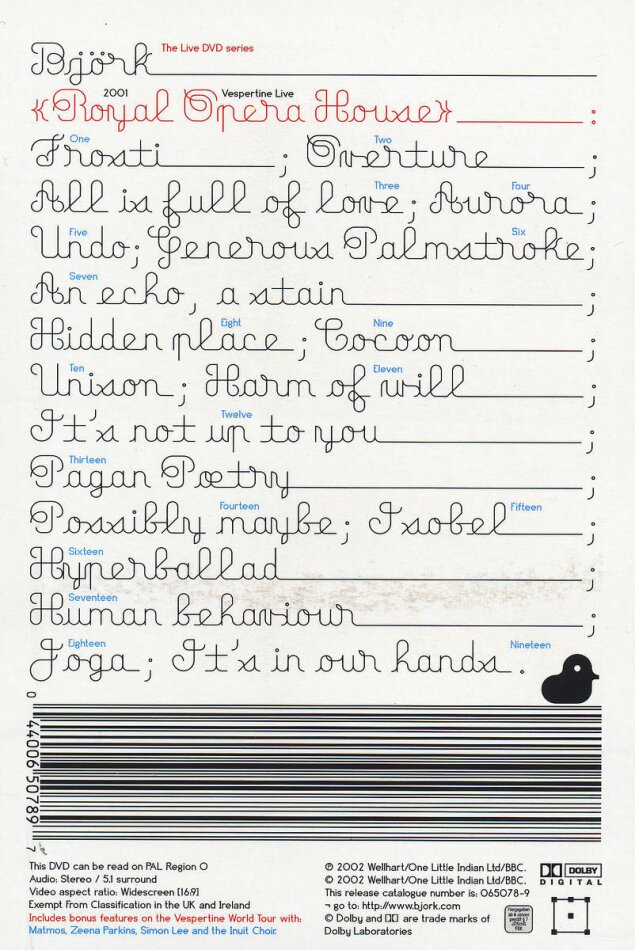 Björk The Live DVD series
2001 Vespertine Live
«Royal Opera House» :
One Two
Frosti ; Overture ;
Three Four
All is full of love; Aurora ;
Five Six
Undo; Generous Palmstroke;
Seven
An echo, a stain ;
Eight Nine
Hidden place ; Cocoon ;
Ten Eleven
Unison ; Harm of will ;
Twelve
It's not up to you ;
Thirteen
Pagan Poetry ;
Fourteen Fifteen
Possibly maybe; Isobel ;
Sixteen
Hyperballad ;
Seventeen
Human behaviour ;
Eighteen Nineteen
Joga ; It's in our hands .
0 44006 50789 7
This DVD can be read on PAL Region 0
Audio: Stereo / 5.1 surround
Video aspect ratio: Widescreen [16:9]
Exempt From Classification in the UK and Ireland
Includes bonus features on the Vespertine World Tour with:
Matmos, Zeena Parkins, Simon Lee and the Inuit Choir.
℗ 2002 Wellhart/One Little Indian Ltd/BBC.
© 2002 Wellhart/One Little Indian Ltd/BBC.
This release catalogue number is: 065078-9
¬ go to: http://www.bjork.com
© Dolby and DD are trade marks of
Dolby Laboratories
DOLBY
DIGITAL